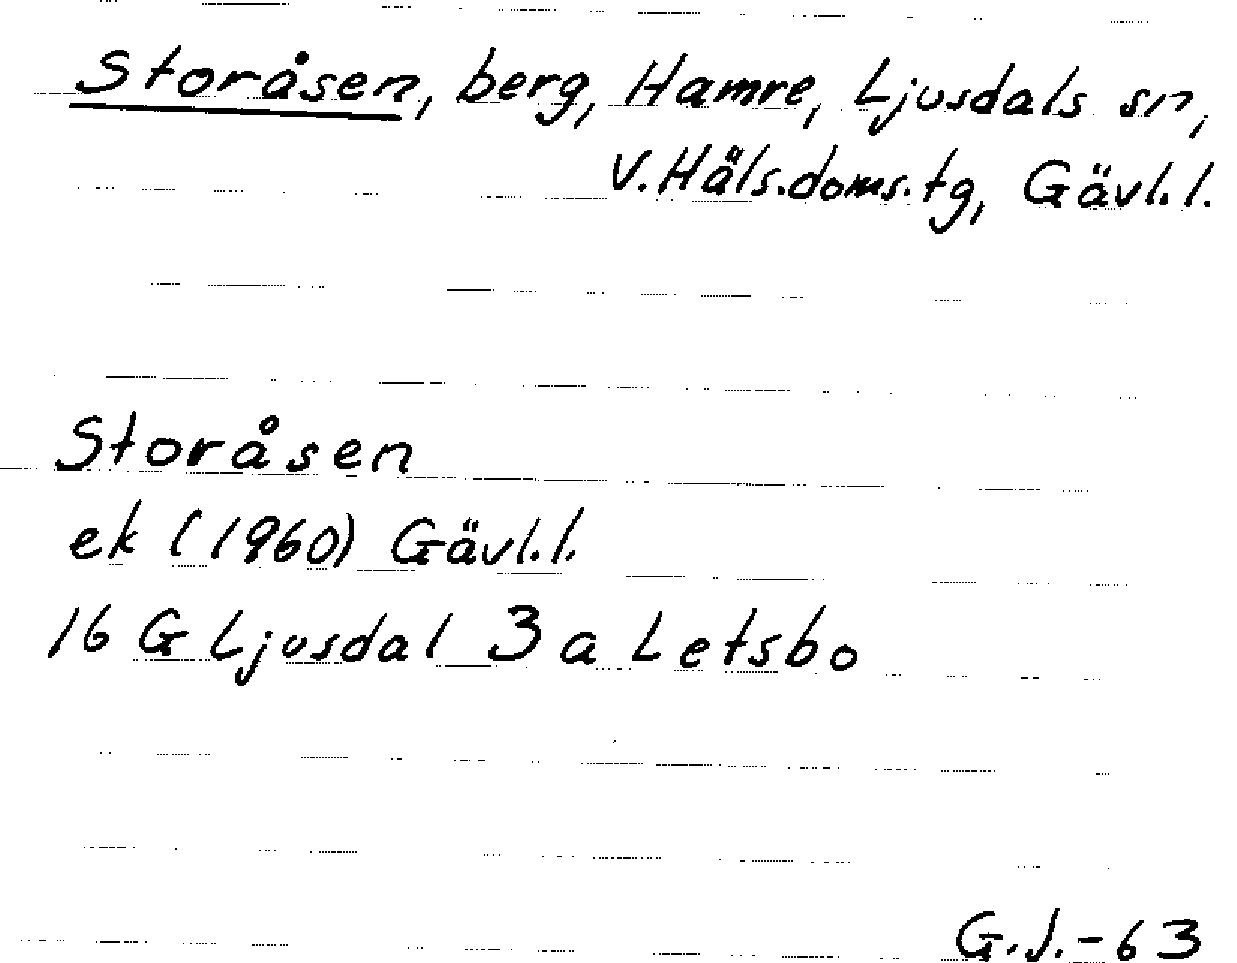 Storåsen, berg, Hamre, Ljusdals sn,
V. Häls. doms. tg, Gävl. l.
Storåsen
ek (1960) Gävl. l.
16 G Ljusdal 3 a Letsbo
G. J. - 63